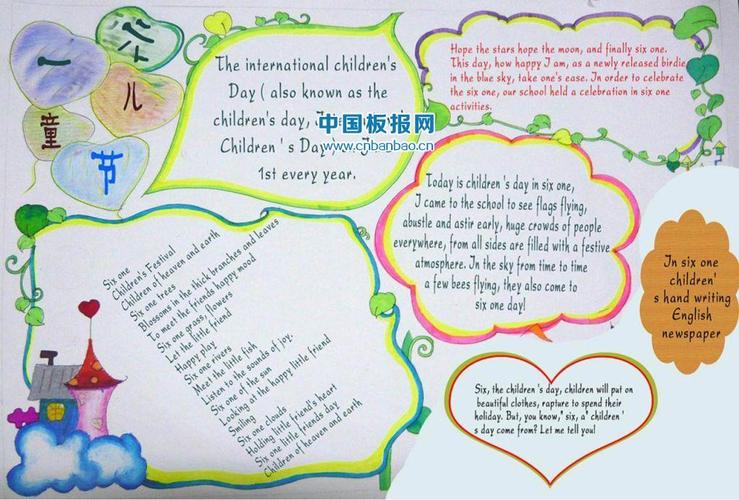 六
一
儿
童
节
The international children's
Day ( also known as the
children's day,
Children ' s Day,
1st every year.
中国板报网
www.cnbanbao.cn
Hope the stars hope the moon, and finally six one.
This day, how happy I am, as a newly released birdie
in the blue sky, take one's ease. In order to celebrate
the six one, our school held a celebration in six one
activities.
Today is children ' s day in six one,
I came to the school to see flags flying,
abustle and astir early, huge crowds of people
everywhere, from all sides are filled with a festive
atmosphere. In the sky from time to time
a few bees flying, they also come to
six one day!
In six one
children'
s hand writing
English
newspaper
Six one
Children's Festival
Children of heaven and earth
Six one trees
Blossoms in the thick branches and leaves
To meet the friends happy mood
Six one grass, flowers
Let the little friend
Happy play
Six one rivers
Meet the little fish
Listen to the sounds of joy.
Six one of the sun
Looking at the happy little friend
Smiling
Six one clouds
Holding little friend's heart
Six one little friends day
Children of heaven and earth
Six, the children 's day, children will put on
beautiful clothes, rapture to spend their
holiday. But, you know,' six, a' children '
s day come from? Let me tell you!